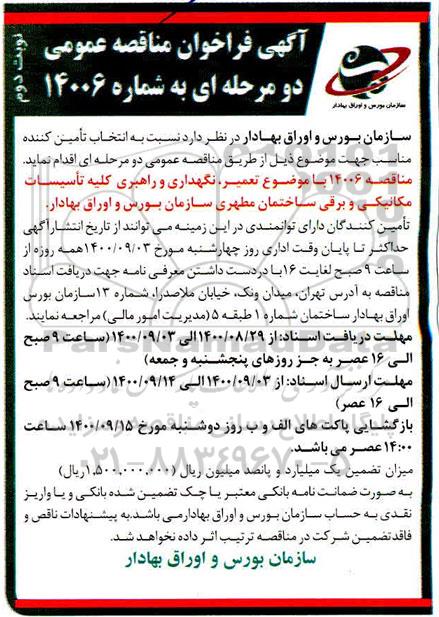 نوبت دوم
آگهی فراخوان مناقصه عمومی
دو مرحله ای به شماره ۱۴۰۰۶
سازمان بورس و اوراق بهادار
سازمان بورس و اوراق بهادار در نظر دارد نسبت به انتخاب تأمین کننده
مناسب جهت موضوع ذیل از طریق مناقصه عمومی دو مرحله ای اقدام نماید.
مناقصه ۱۴۰۰۶ با موضوع تعمیر، نگهداری و راهبری کلیه تأسیسات
مکانیکی و برقی ساختمان مطهری سازمان بورس و اوراق بهادار.
تأمین کنندگان دارای توانمندی در این زمینه می توانند از تاریخ انتشار آگهی
حداکثر تا پایان وقت اداری روز چهارشنبه مورخ ۱۴۰۰/۰۹/۰۳ همه روزه از
ساعت ۹ صبح لغایت ۱۶ با در دست داشتن معرفی نامه جهت دریافت اسناد
مناقصه به آدرس تهران، میدان ونک، خیابان ملاصدرا، شماره ۱۳ سازمان بورس
اوراق بهادار ساختمان شماره ۱ طبقه ۵ (مدیریت امور مالی) مراجعه نمایند.
مهلت دریافت اسناد: از ۱۴۰۰/۰۸/۲۹ الی ۱۴۰۰/۰۹/۰۳ (ساعت ۹ صبح
الی ۱۶ عصر به جز روزهای پنجشنبه و جمعه)
مهلت ارسال اسناد: از ۱۴۰۰/۰۹/۰۳ الی ۱۴۰۰/۰۹/۱۴ (ساعت ۹ صبح
الی ۱۶ عصر)
بازگشایی پاکت های الف و ب روز دوشنبه مورخ ۱۴۰۰/۰۹/۱۵ ساعت
۱۴:۰۰ عصر می باشد.
میزان تضمین یک میلیارد و پانصد میلیون ریال (۱,۵۰۰,۰۰۰,۰۰۰ ریال)
به صورت ضمانت نامه بانکی معتبر یا چک تضمین شده بانکی و یا واریز
نقدی به حساب سازمان بورس و اوراق بهادار می باشد. به پیشنهادات ناقص و
فاقد تضمین شرکت در مناقصه ترتیب اثر داده نخواهد شد.
سازمان بورس و اوراق بهادار